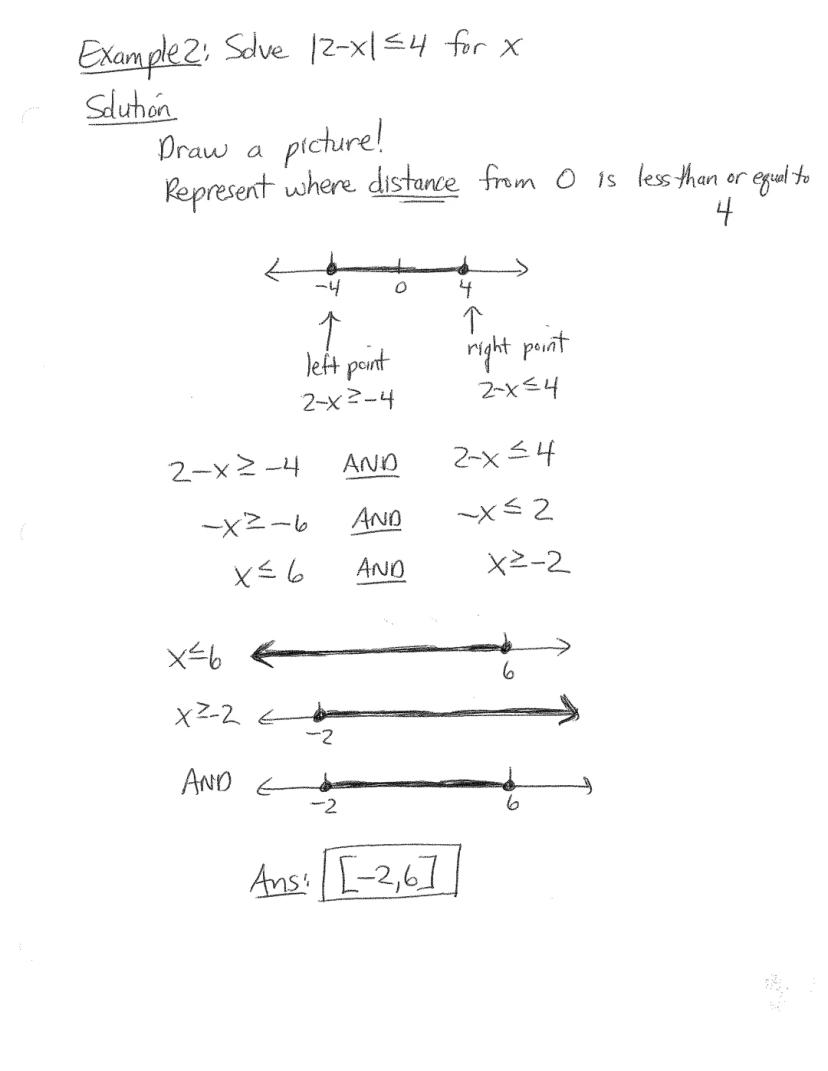 Example 2: Solve |2-x| ≤ 4 for x
Solution
Draw a picture!
Represent where distance from 0 is less than or equal to
4
-4 0 4
↑ ↑
left point right point
2-x ≥ -4 2-x ≤ 4
2-x ≥ -4 AND 2-x ≤ 4
-x ≥ -6 AND -x ≤ 2
x ≤ 6 AND x ≥ -2
x ≤ 6
6
x ≥ -2
-2
AND
-2 6
Ans: [-2,6]